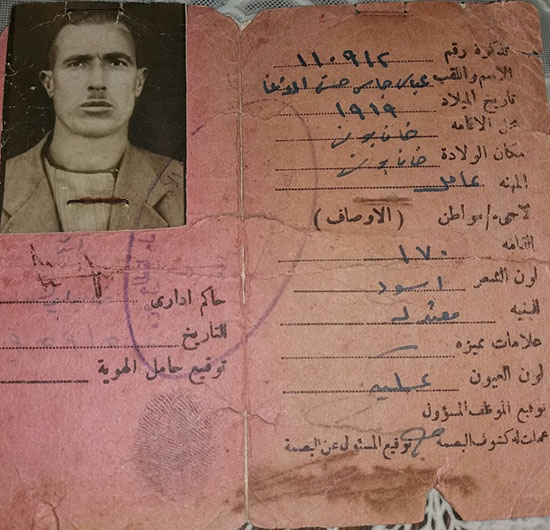 تذكرة رقم ١١٠٩١٢
الاسم واللقب عباس حسن
تاريخ الميلاد ١٩١٩
محل الاقامه خانيونس
مكان الولادة خانيونس
المهنه عامل
لاجىء/مواطن (الاوصاف)
القامه ١٧٠
لون الشعر اسود
البنيه معتدله
علامات مميزه
لون العيون عسليه
توقيع الموظف المسؤول
عملت له كشوف البصمة توقيع المسئول عن البصمة
حاكم ادارى
التاريخ
توقيع حامل الهوية